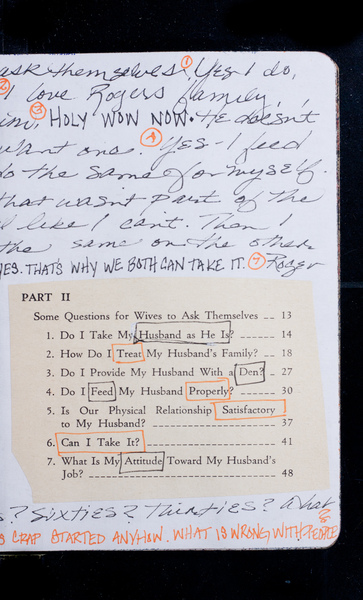 ask themselves. ① Yes I do,
② I love Rogers family,
③ HOLY WOW NOW. He doesn't
want one. ④ Yes - I feed
do the same for myself.
that wasn't part of the
like I can't. Then I
the same on the other
YES. THAT'S WHY WE BOTH CAN TAKE IT. ⑦ Roger
PART II
Some Questions for Wives to Ask Themselves -- 13
1. Do I Take My Husband as He Is? ------ 14
2. How Do I Treat My Husband's Family? -- 18
3. Do I Provide My Husband With a Den? -- 27
4. Do I Feed My Husband Properly? ------ 30
5. Is Our Physical Relationship Satisfactory
to My Husband? ------------------ 37
6. Can I Take It? ---------------------- 41
7. What Is My Attitude Toward My Husband's
Job? ---------------------------- 48
? Sixties? Thirties? What
CRAP STARTED ANYHOW. WHAT IS WRONG WITH PEOPLE?